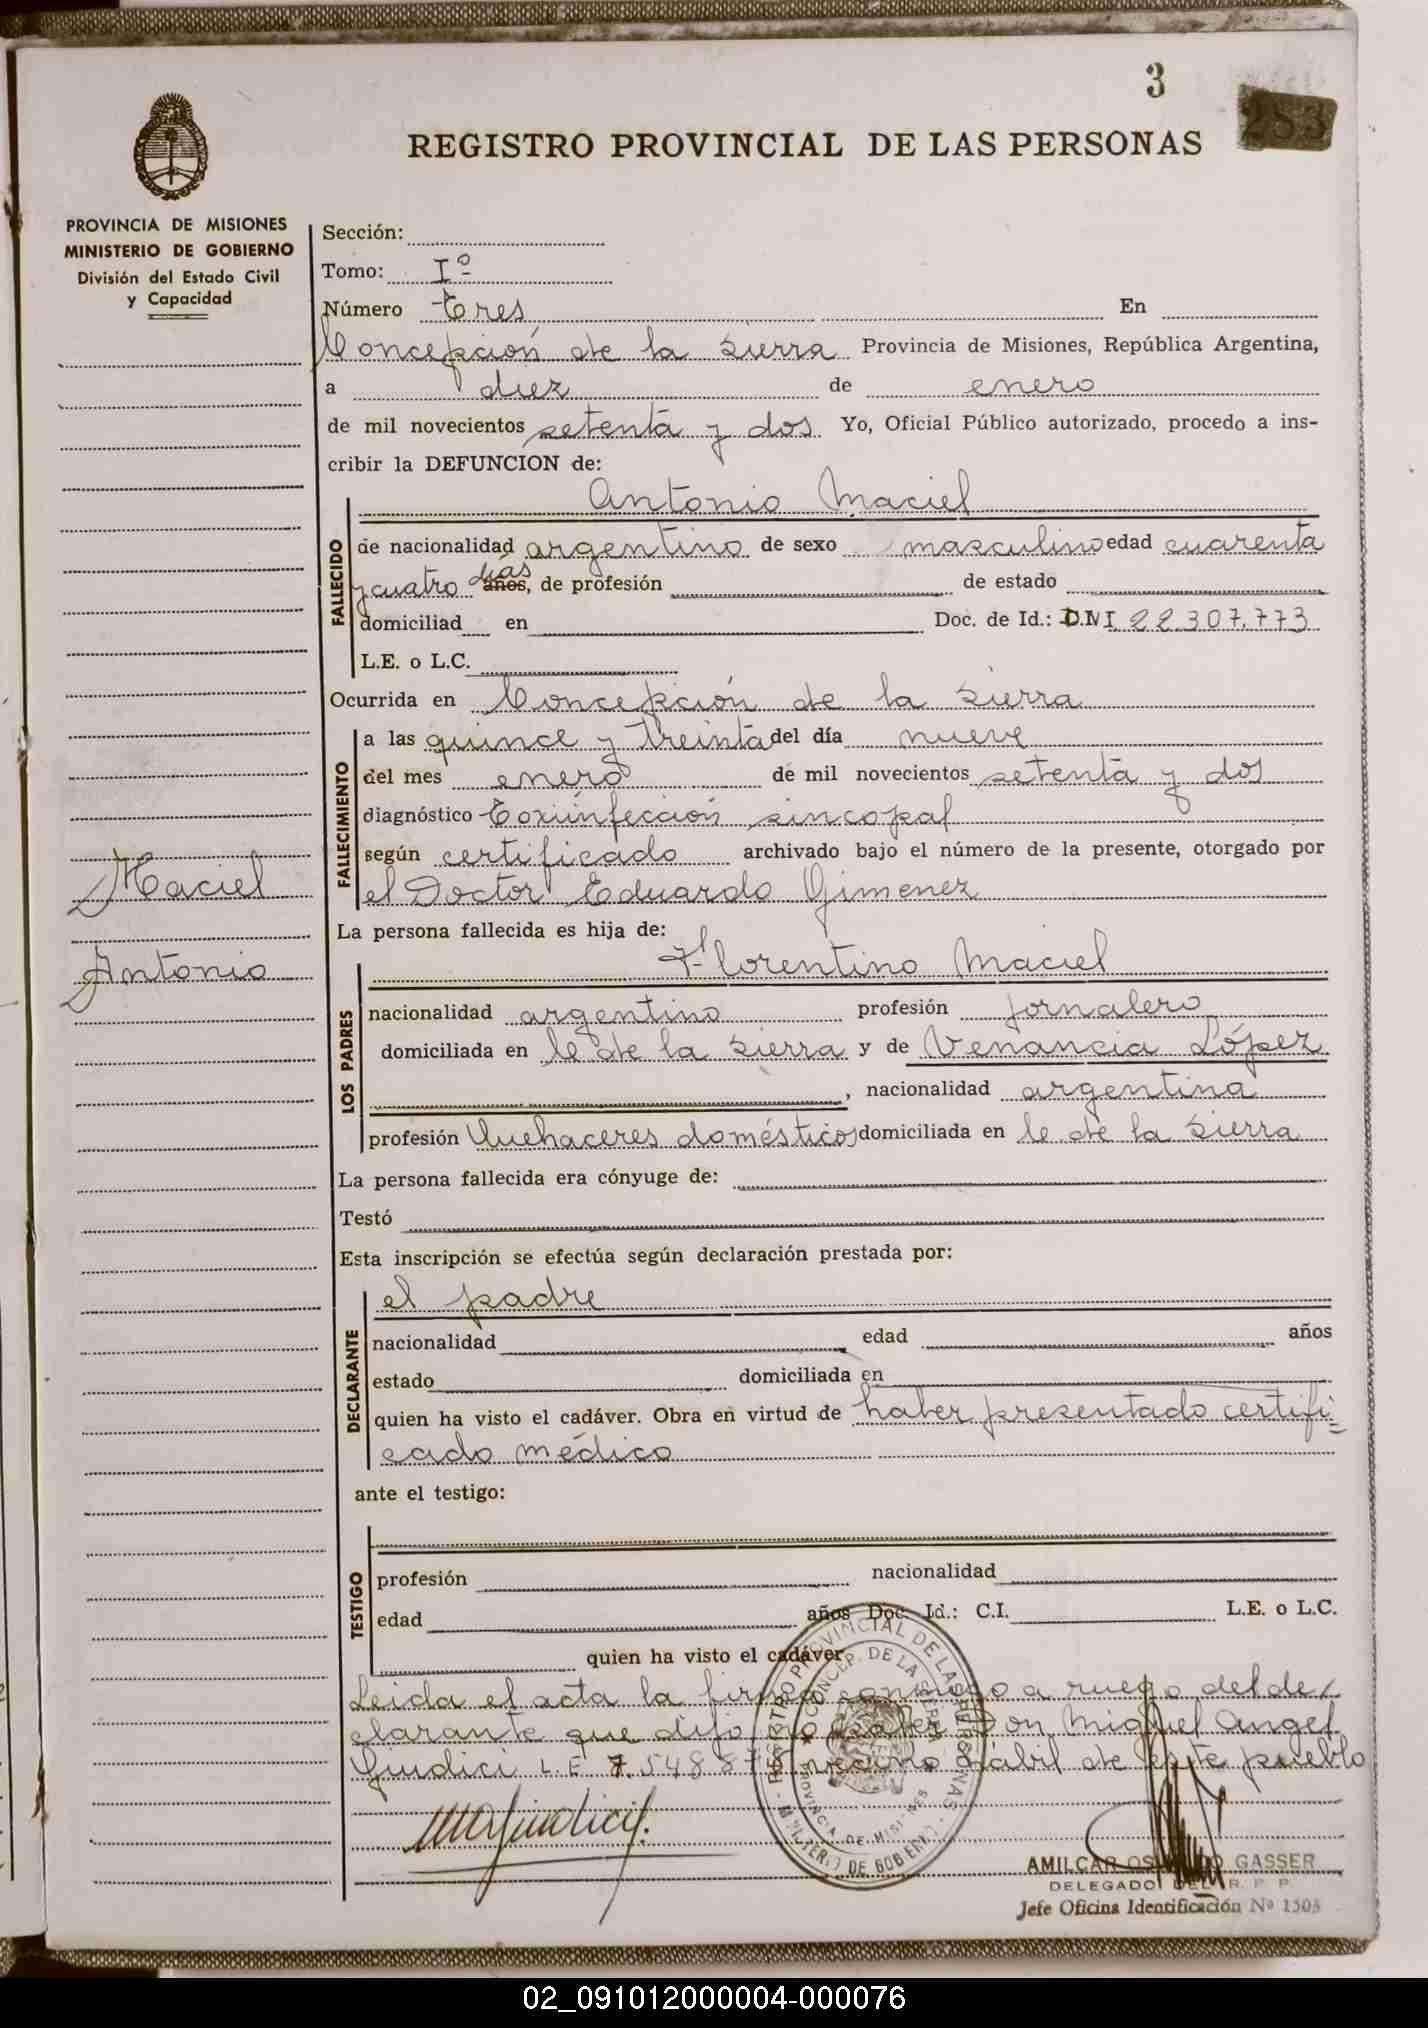 3
253
REGISTRO PROVINCIAL DE LAS PERSONAS
PROVINCIA DE MISIONES
MINISTERIO DE GOBIERNO
División del Estado Civil
y Capacidad
Maciel
Antonio
Sección:
Tomo: Iº
Número tres En
Concepción de la Sierra Provincia de Misiones, República Argentina,
a diez de enero
de mil novecientos setenta y dos Yo, Oficial Público autorizado, procedo a ins-
cribir la DEFUNCION de:
Antonio Maciel
FALLECIDO
de nacionalidad argentino de sexo masculino edad cuarenta
y cuatro días años, de profesión de estado
domiciliad en Doc. de Id.: D.N.I 22.307.773
L.E. o L.C.
Ocurrida en Concepción de la Sierra
FALLECIMIENTO
a las quince y treinta del día nueve
del mes enero de mil novecientos setenta y dos
diagnóstico Toxiinfección sincopal
según certificado archivado bajo el número de la presente, otorgado por
el Doctor Eduardo Gimenez
La persona fallecida es hija de:
Florentino Maciel
LOS PADRES
nacionalidad argentino profesión jornalero
domiciliada en C. de la Sierra y de Venancia López
, nacionalidad argentina
profesión Quehaceres domésticos domiciliada en C. de la Sierra
La persona fallecida era cónyuge de:
Testó
Esta inscripción se efectúa según declaración prestada por:
el padre
DECLARANTE
nacionalidad edad años
estado domiciliada en
quien ha visto el cadáver. Obra en virtud de haber presentado certifi=
cado médico
ante el testigo:
TESTIGO
profesión nacionalidad
edad años Doc. Id.: C.I. L.E. o L.C.
quien ha visto el cadáver
Leida el acta la firmó conmigo a ruego del de/
clarante que dijo no saber Don Miguel Angel
Giudici L.E 7.548.87 vecino hábil de este pueblo
REGISTRO PROVINCIAL DE LAS PERSONAS
CONCEP. DE LA SIERRA
PROVINCIA DE MISIONES
MINISTERIO DE GOBIERNO
MAGiudici
AMILCAR OSVALDO GASSER
DELEGADO DEL R. P. P.
Jefe Oficina Identificación Nº 1503
02_091012000004-000076